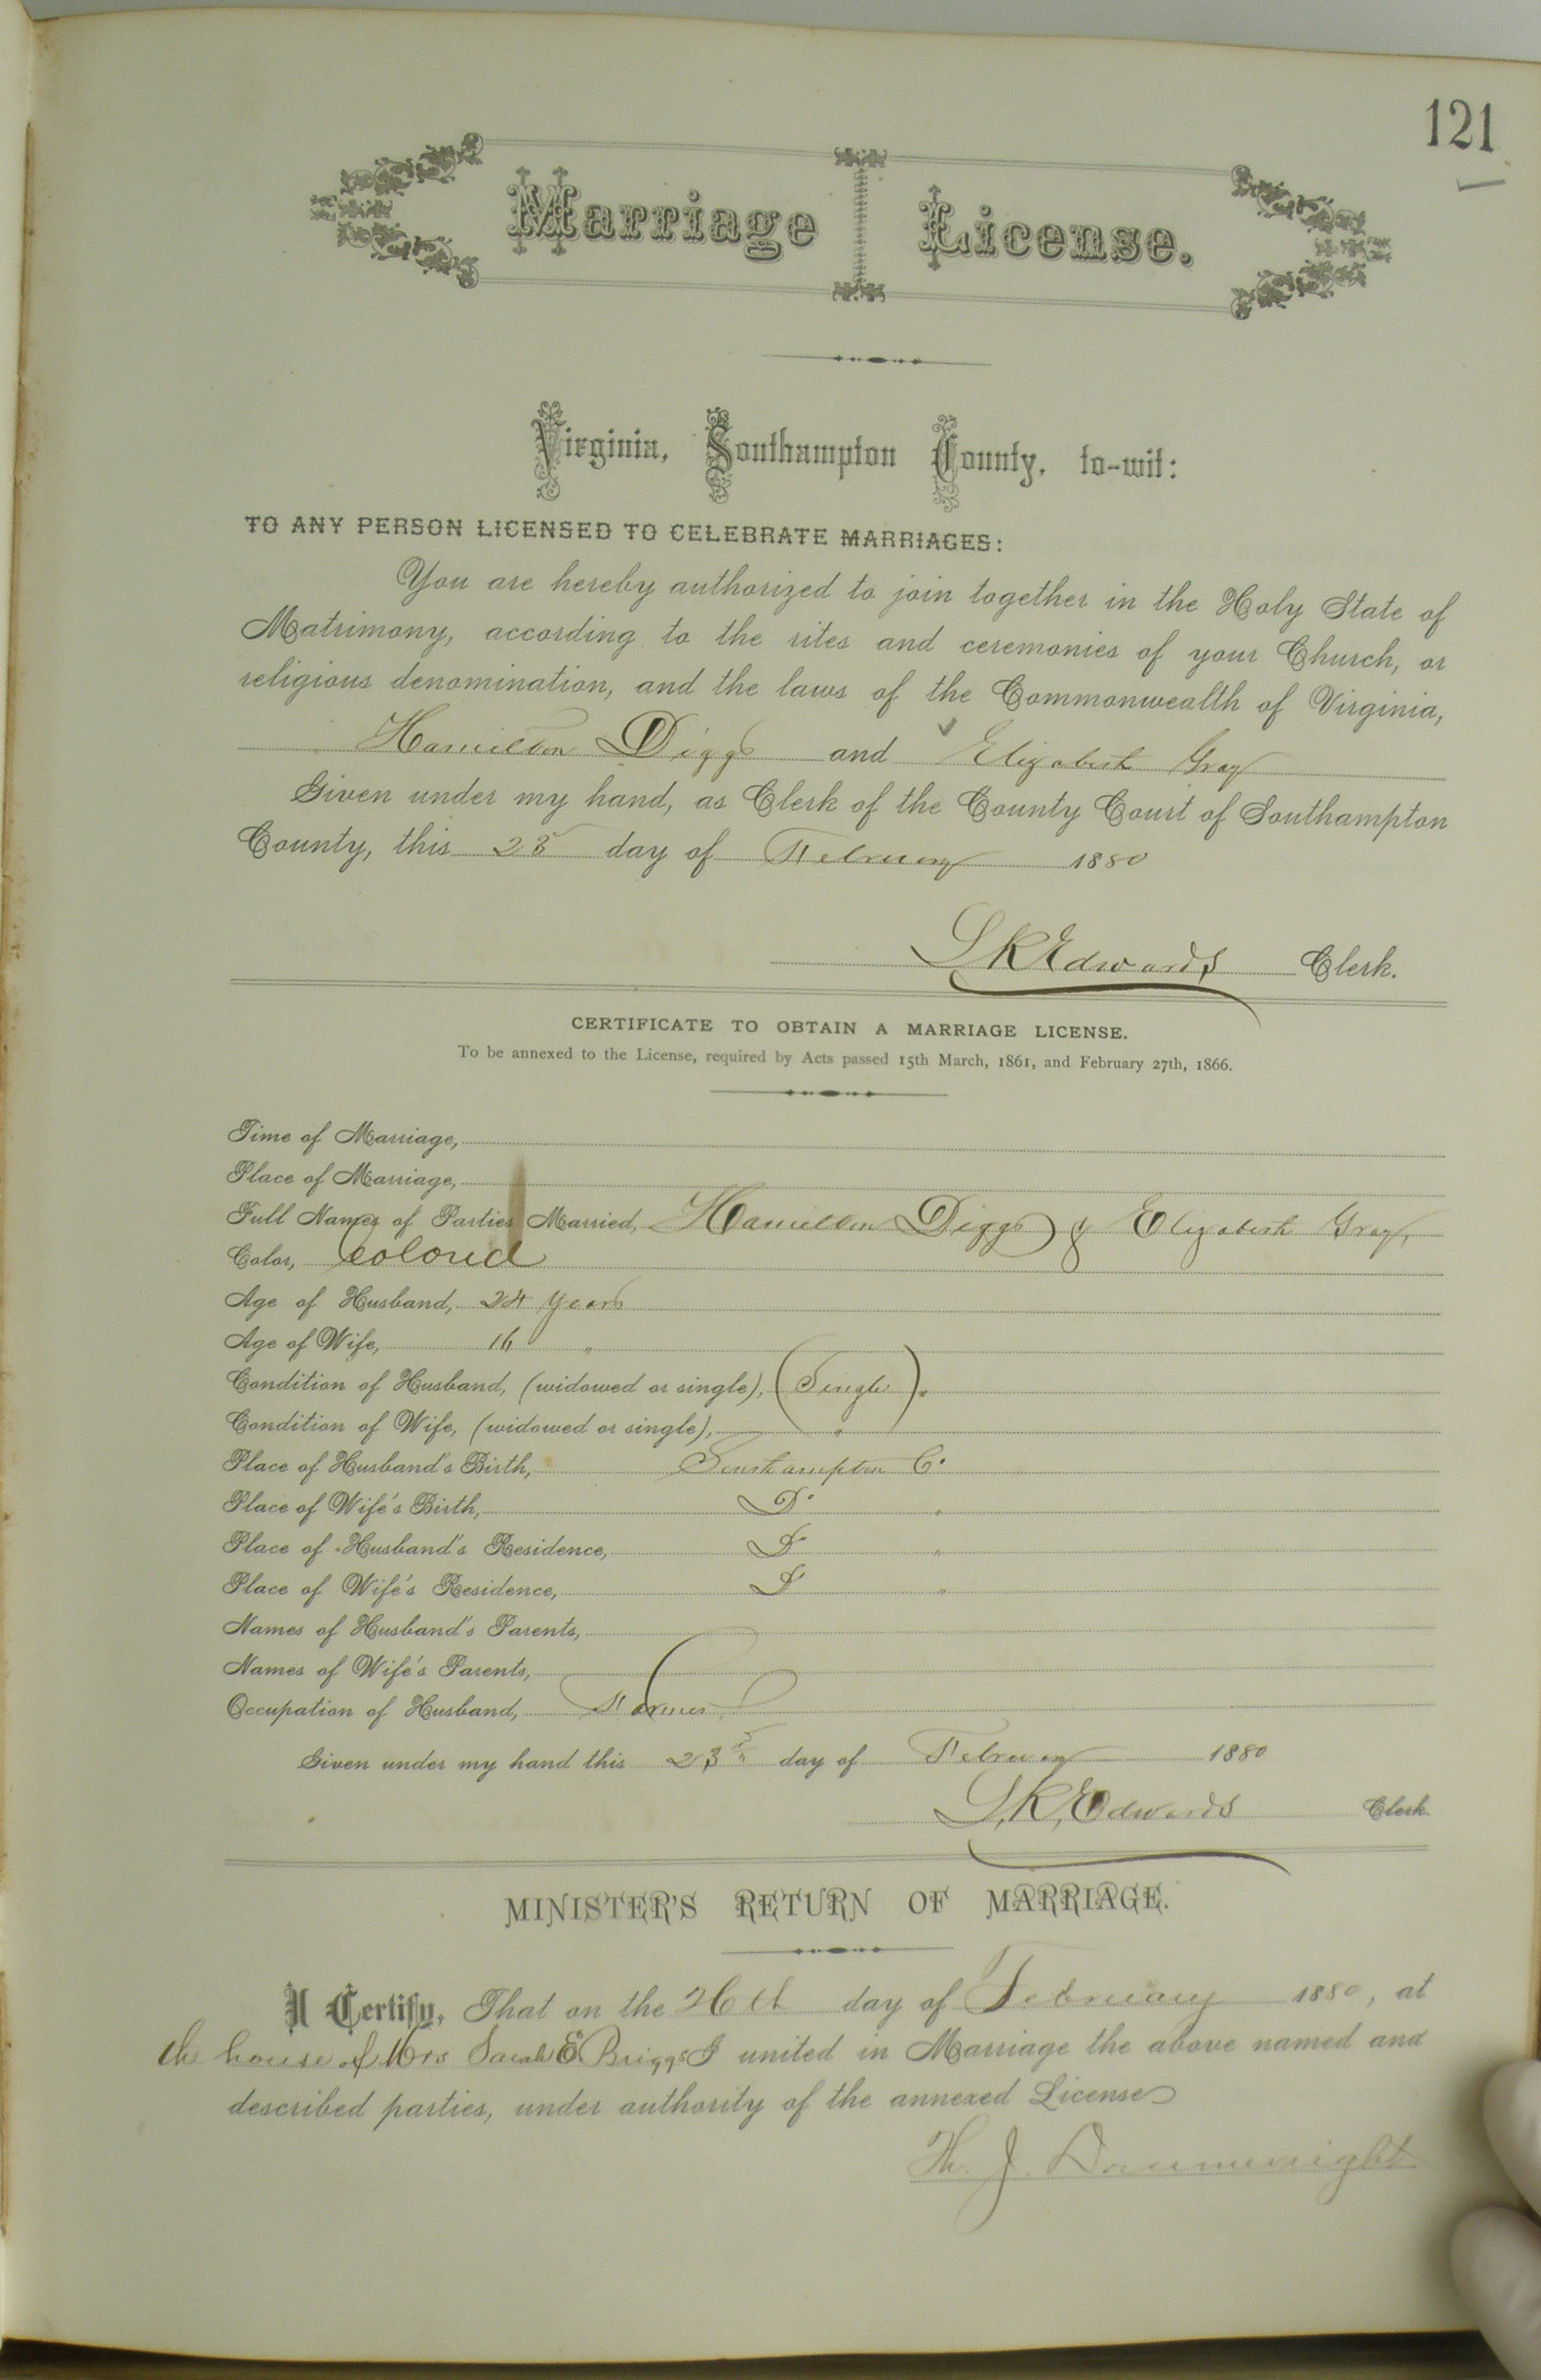 121
Marriage License.
Virginia, Southampton County, to-wit:
TO ANY PERSON LICENSED TO CELEBRATE MARRIAGES:
You are hereby authorized to join together in the Holy State of
Matrimony, according to the rites and ceremonies of your Church, or
religious denomination, and the laws of the Commonwealth of Virginia,
Hamilton Diggs and Elizabeth Gray
Given under my hand, as Clerk of the County Court of Southampton
County, this 23 day of February 1880
L R Edwards Clerk.
CERTIFICATE TO OBTAIN A MARRIAGE LICENSE.
To be annexed to the License, required by Acts passed 15th March, 1861, and February 27th, 1866.
Time of Marriage,
Place of Marriage,
Full Names of Parties Married, Hamilton Diggs & Elizabeth Gray,
Color, Colored
Age of Husband, 24 years
Age of Wife, 16 "
Condition of Husband, (widowed or single), (Single)
Condition of Wife, (widowed or single), "
Place of Husband's Birth, Southampton Co
Place of Wife's Birth, Do "
Place of Husband's Residence, Do "
Place of Wife's Residence, Do "
Names of Husband's Parents,
Names of Wife's Parents,
Occupation of Husband, Farmer
Given under my hand this 23 day of February 1880
L. R. Edwards Clerk.
MINISTER'S RETURN OF MARRIAGE.
I Certify, That on the 26th day of February 1880, at
the house of Mrs Sarah E Briggs I united in Marriage the above named and
described parties, under authority of the annexed License
J.